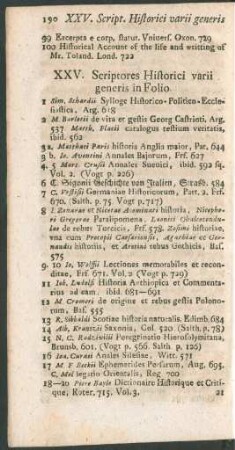 190 XXV. Script. Historici varii generis
99 Excerpta e corp. statut. Univers. Oxon. 729
100 Historical Account of the life and writting of
Mr. Toland. Lond. 722
XXV. Scriptores Historici varii
generis in Folio.
1 Sim. Schardii Sylloge Historico-Politico-Eccle-
siastica, Arg. 618
2 M Barletii de vita et gestis Georg Castrioti, Arg.
537. March. catalogus testium veritatis,
ibid. 562
32. Matthaei Paris historia Anglia major, Par, 644
3 b. Io. Aventini Annales Bajorum, Frf. 627
4. 5 Mart. Crusii Annales Suevici, ibid. 592 sq.
Vol. 2. (Vogt p. 226)
6 C. Sigonii Geschichte von Italien, Strasb. 584
7 C. Germanicarum Historicorum, Part. 2. Frf.
670. (Salth. p. 75. Vogt p. 717)
8 I Zonarae et Nicetae Acominati historia, Nicepho-
ri Gregorae Paralipomena, Laonici
lae de rebus Turcicis, Frf. 578. Zosimi historiae,
una cum Procopii Caesariensis, Agathiae et Gor-
nandis historiis et Aretini rebus Gothicis, Bas.
575
9. 10 Io. Wolfii Lectiones memorabiles et recon-
ditae, Frf. 671. Vol. 2 (Vogt p. 729)
11 Iob. Ludolfi Historia Aethiopica et Commenta-
rius ad eam. ibid. 681-691
12 M Cromeri de origine et rebus gestis Polono-
rum, Bas. 555
13 R. Sibbaldi Scotiae historia naturalis. Edimb. 684
14 Alb. Krantzii Saxonia, Col. 520 (Salth. p. 78)
15 N. C. Radzivilii Peregrinatio Hierosolymitana,
Brunsb. 601. (Vogt p. 566. Salth. p. 126)
16 Ioa. Curaei Anales Silesiae, Witt. 571
17 M. F. Beckii Ephemerides Persarum, Aug. 695.
C. legatio Orientalis, Reg. 700
18—20 Pierre Bayle Dictionaire Historique et Criti-
que, Roter. 715. Vol. 3. 21